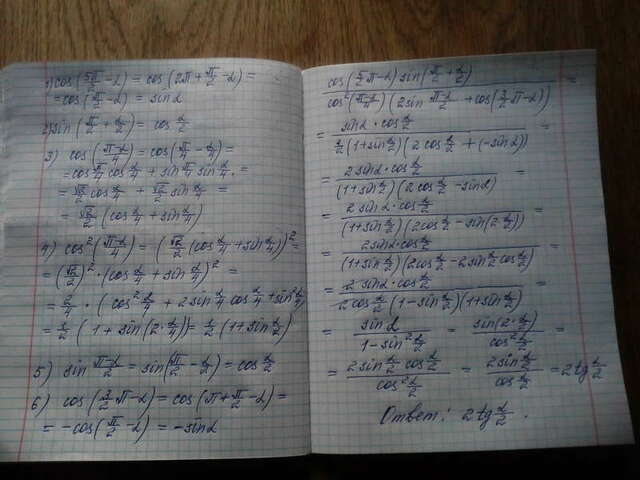 1) cos(5π/2 - α) = cos(2π + π/2 - α) =
= cos(π/2 - α) = sin α
2) sin(π/2 + α/2) = cos α/2
3) cos(π-α/4) = cos(π/4 - α/4) =
= cos π/4 cos α/4 + sin π/4 sin α/4 =
= √2/2 cos α/4 + √2/2 sin α/4 =
= √2/2 (cos α/4 + sin α/4)
4) cos²(π-α/4) = (√2/2 (cos α/4 + sin α/4))² =
= (√2/2)² · (cos α/4 + sin α/4)² =
= 2/4 · (cos² α/4 + 2 sin α/4 cos α/4 + sin² α/4)
= 1/2 (1 + sin(2·α/4)) = 1/2 (1 + sin α/2)
5) sin π-α/2 = sin(π/2 - α/2) = cos α/2
6) cos(3/2 π - α) = cos(π + π/2 - α) =
= -cos(π/2 - α) = -sin α
cos(5/2 π - α) sin(π/2 + α/2)
cos²(π-α/4)(2 sin π-α/2 + cos(3/2 π - α)) =
= sin α · cos α/2
1/2 (1 + sin α/2)(2 cos α/2 + (-sin α)) =
= 2 sin α · cos α/2
(1 + sin α/2)(2 cos α/2 - sin α) =
= 2 sin α · cos α/2
(1 + sin α/2)(2 cos α/2 - sin(2 α/2)) =
= 2 sin α · cos α/2
(1 + sin α/2)(2 cos α/2 - 2 sin α/2 cos α/2) =
= 2 sin α · cos α/2
2 cos α/2 (1 - sin α/2)(1 + sin α/2) =
= sin α / 1 - sin² α/2 = sin(2·α/2) / cos² α/2 =
= 2 sin α/2 cos α/2 / cos² α/2 = 2 sin α/2 / cos α/2 = 2 tg α/2
Ответ: 2 tg α/2.